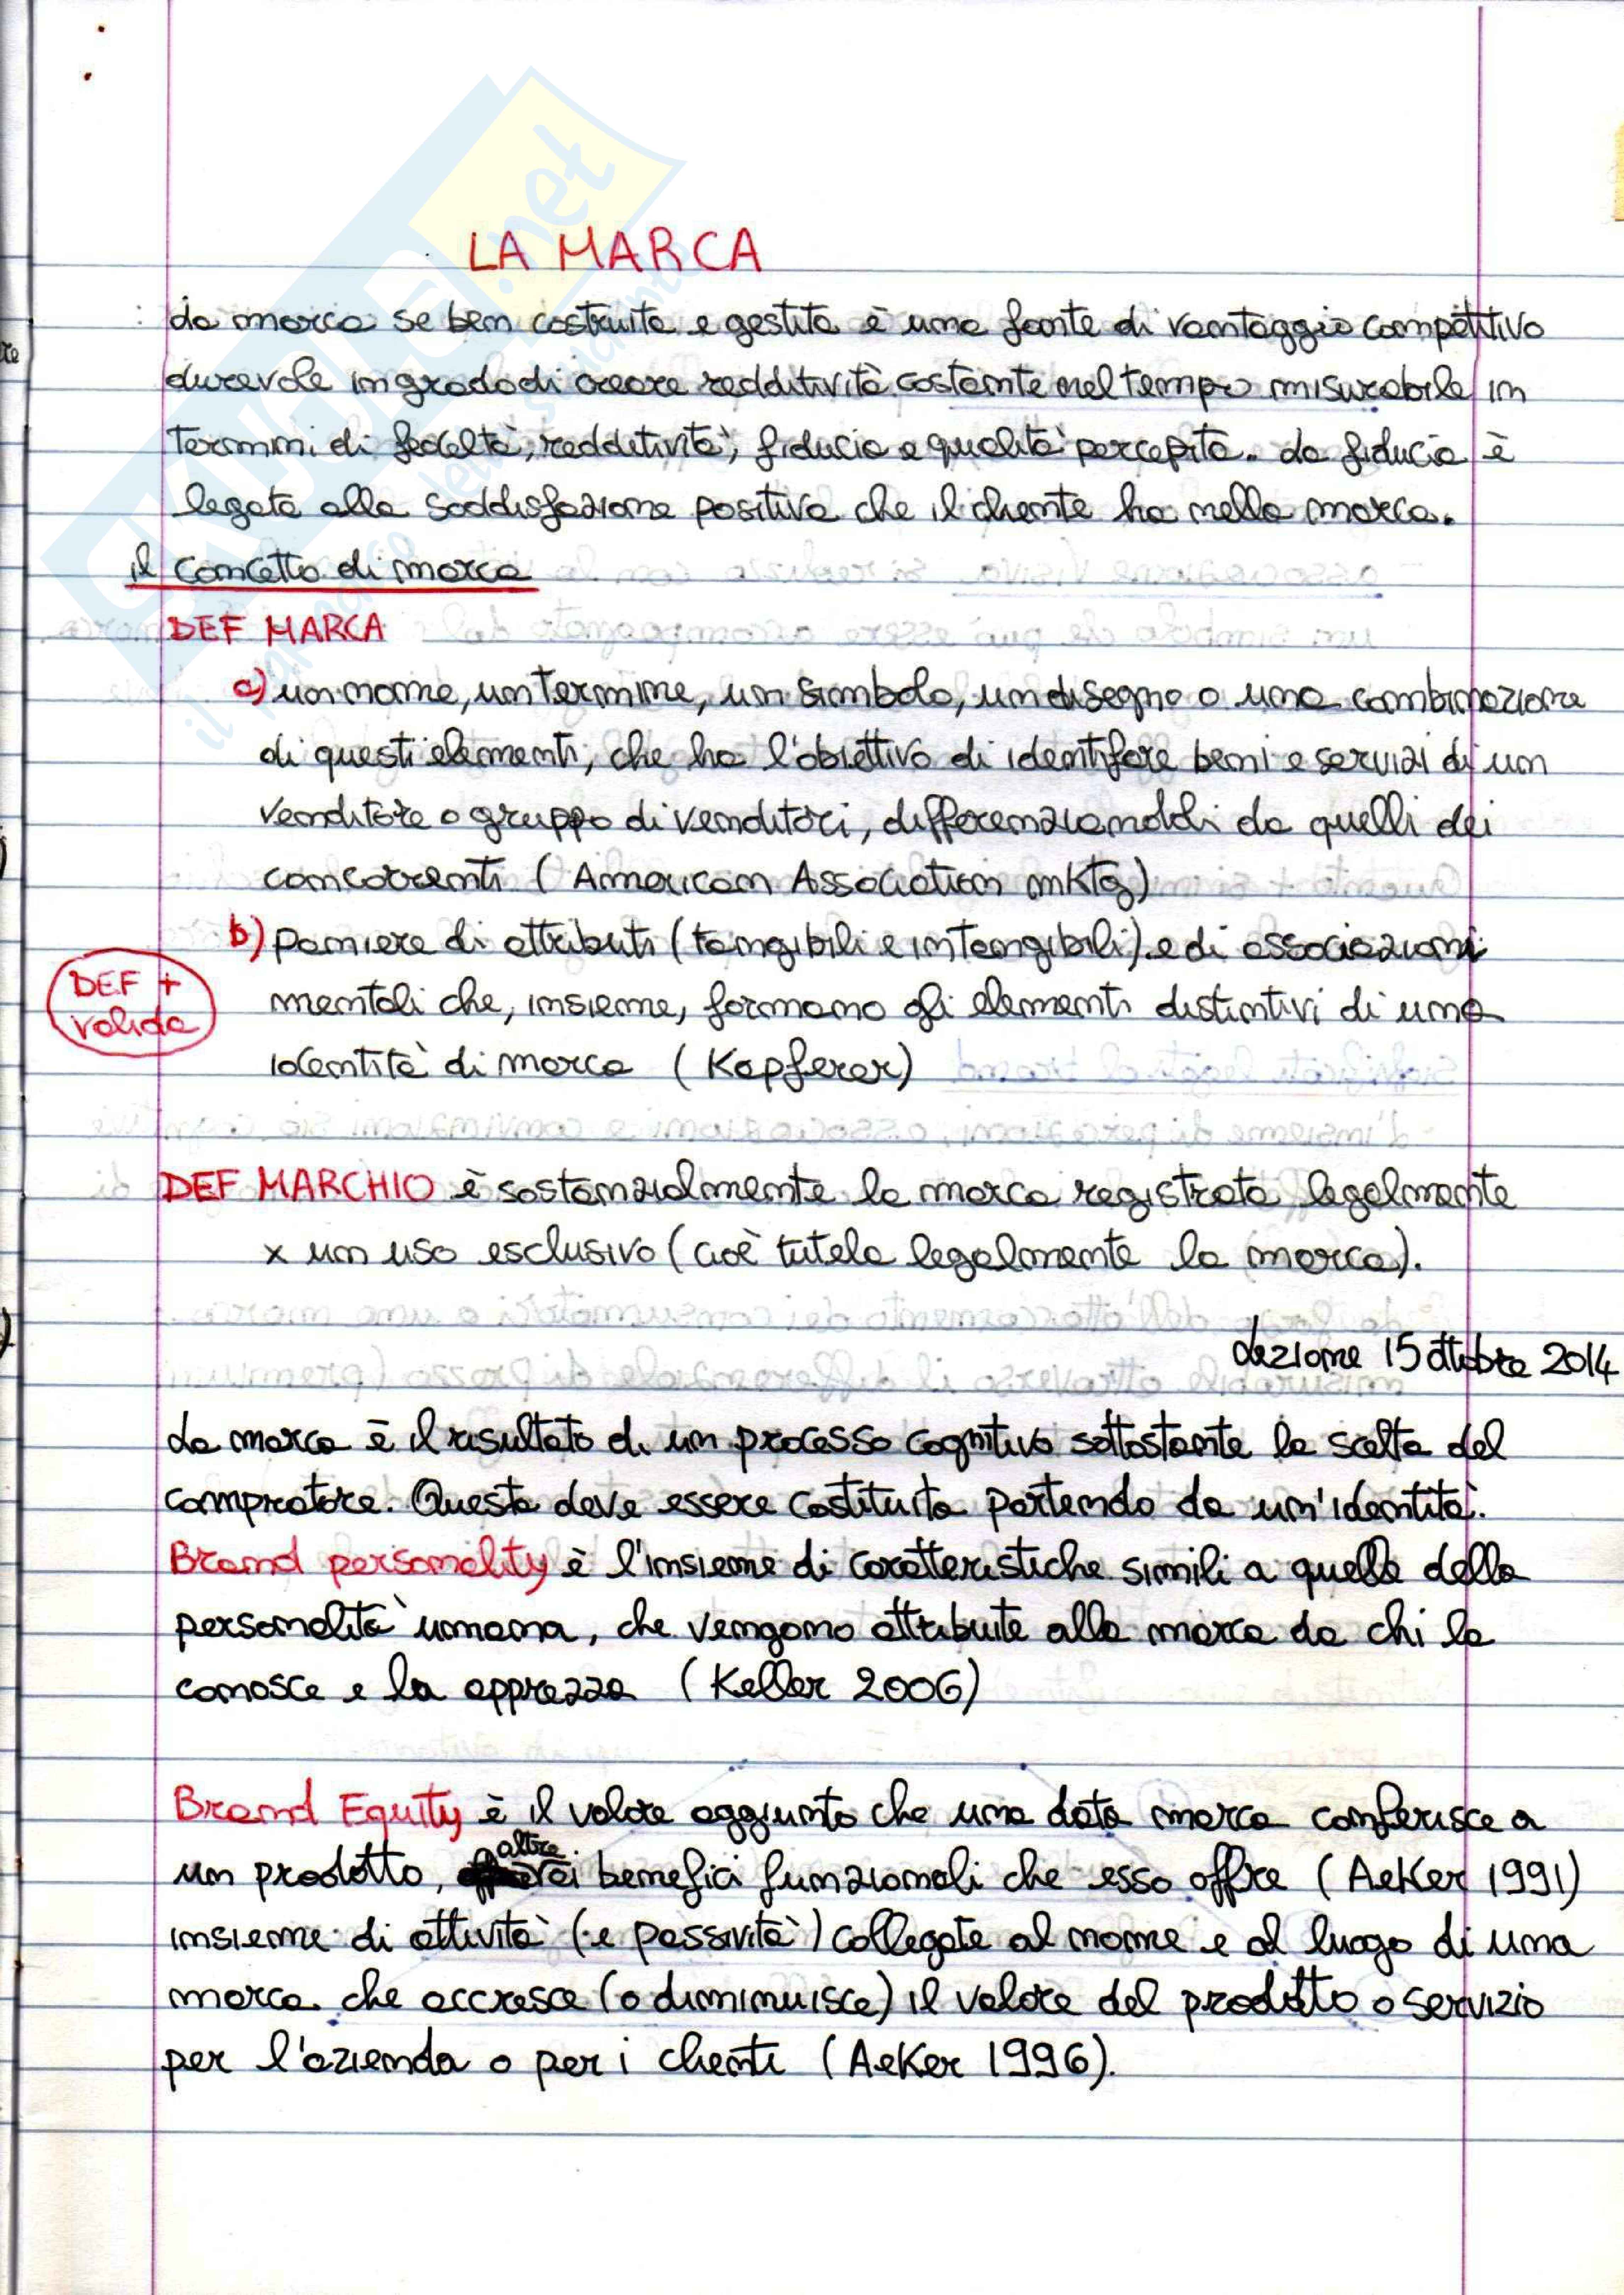 LA MARCA
La marca se ben costruita e gestita è una fonte di vantaggio competitivo
durevole in grado di creare redditività costante nel tempo misurabile in
termini di fedeltà, redditività, fiducia e qualità percepita. La fiducia è
legata alla soddisfazione positiva che il cliente ha nella marca.
il concetto di marca
DEF MARCA
a) un nome, un termine, un simbolo, un disegno o una combinazione
di questi elementi, che ha l'obiettivo di identifare beni e servizi di un
venditore o gruppo di venditori, differenziandoli da quelli dei
concorrenti (American Association mktg)
b) paniere di attributi (tangibili e intangibili) e di associazioni
DEF +
valida
mentali che, insieme, formano gli elementi distintivi di una
identità di marca (Kapferer)
DEF MARCHIO è sostanzialmente la marca registrata legalmente
x un uso esclusivo (cioè tutela legalmente la marca).
Lezione 15 ottobre 2014
La marca è il risultato di un processo cognitivo sottostante la scelta del
compratore. Questa deve essere costituita partendo da un'identità.
Brand personality è l'insieme di caratteristiche simili a quelle della
personalità umana, che vengono attribuite alla marca da chi la
conosce e la apprezza (Keller 2006)
Brand Equity è il valore aggiunto che una data marca conferisce a
un prodotto, oltre i benefici funzionali che esso offre (Aeker 1991)
insieme di attività (e passività) collegate al nome e al luogo di una
marca che accresce (o diminuisce) il valore del prodotto o servizio
per l'azienda o per i clienti (Aeker 1996).